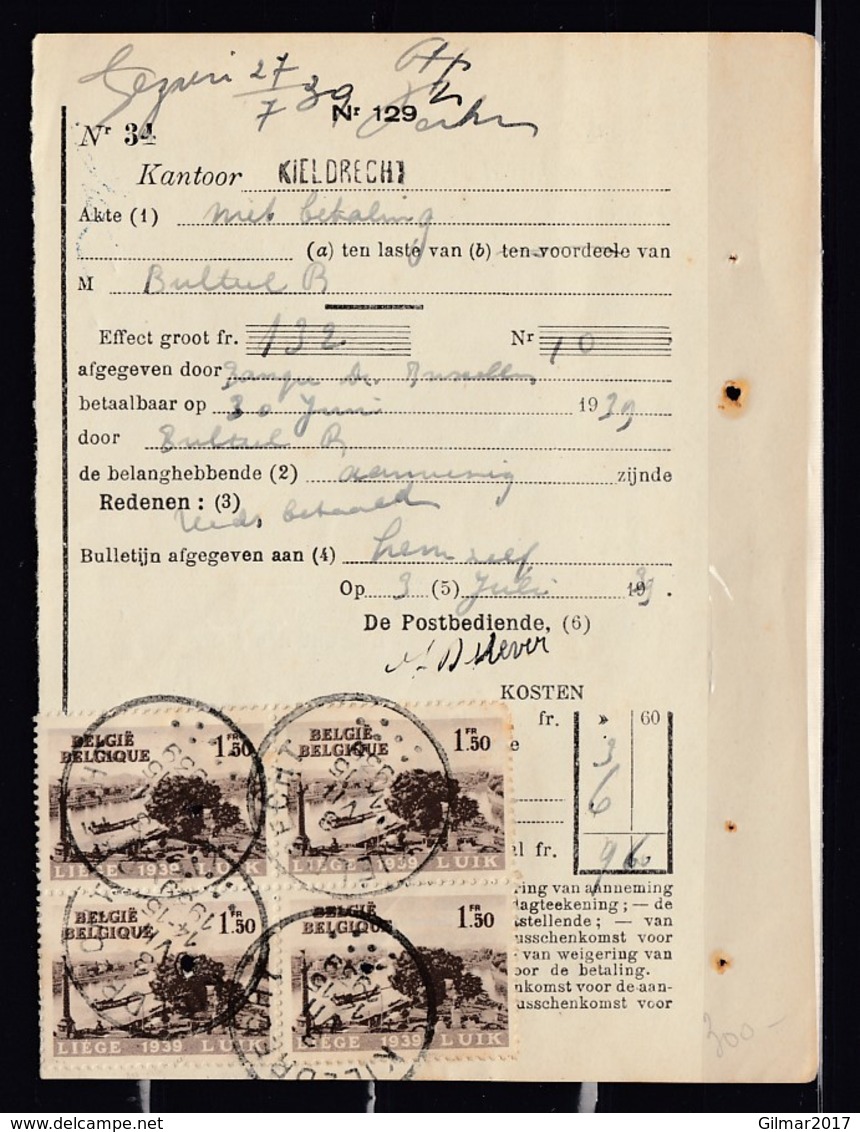 27/7 39
Nr 129
Nr 34
Kantoor KIELDRECHT
Akte (1) niet betaling
(a) ten laste van (b) ten voordeele van
M Bultuel R
Effect groot fr. 132 Nr 10
afgegeven door Banque De Bruxelles
betaalbaar op 30 Juni 1939
door Bultuel R
de belanghebbende (2) aanwezig zijnde
Redenen : (3)
reeds betaald
Bulletijn afgegeven aan (4) hem zelf
Op 3 (5) Juli 1939.
De Postbediende, (6)
KOSTEN
fr. » 60
3
6
l fr. 9 60
ring van anneming
dagteekening ; — de
tstellende ; — van
usschenkomst voor
van weigering van
oor de betaling.
nkomst voor de aan-
usschenkomst voor
BELGIË BELGIQUE 1 FR 50
LIÈGE 1939 LUIK
BELGIË BELGIQUE 1 FR 50
LIÈGE 1939 LUIK
BELGIË BELGIQUE 1 FR 50
LIÈGE 1939 LUIK
BELGIË BELGIQUE 1 FR 50
LIÈGE 1939 LUIK
KIELDRECHT
300-
Gilmar2017